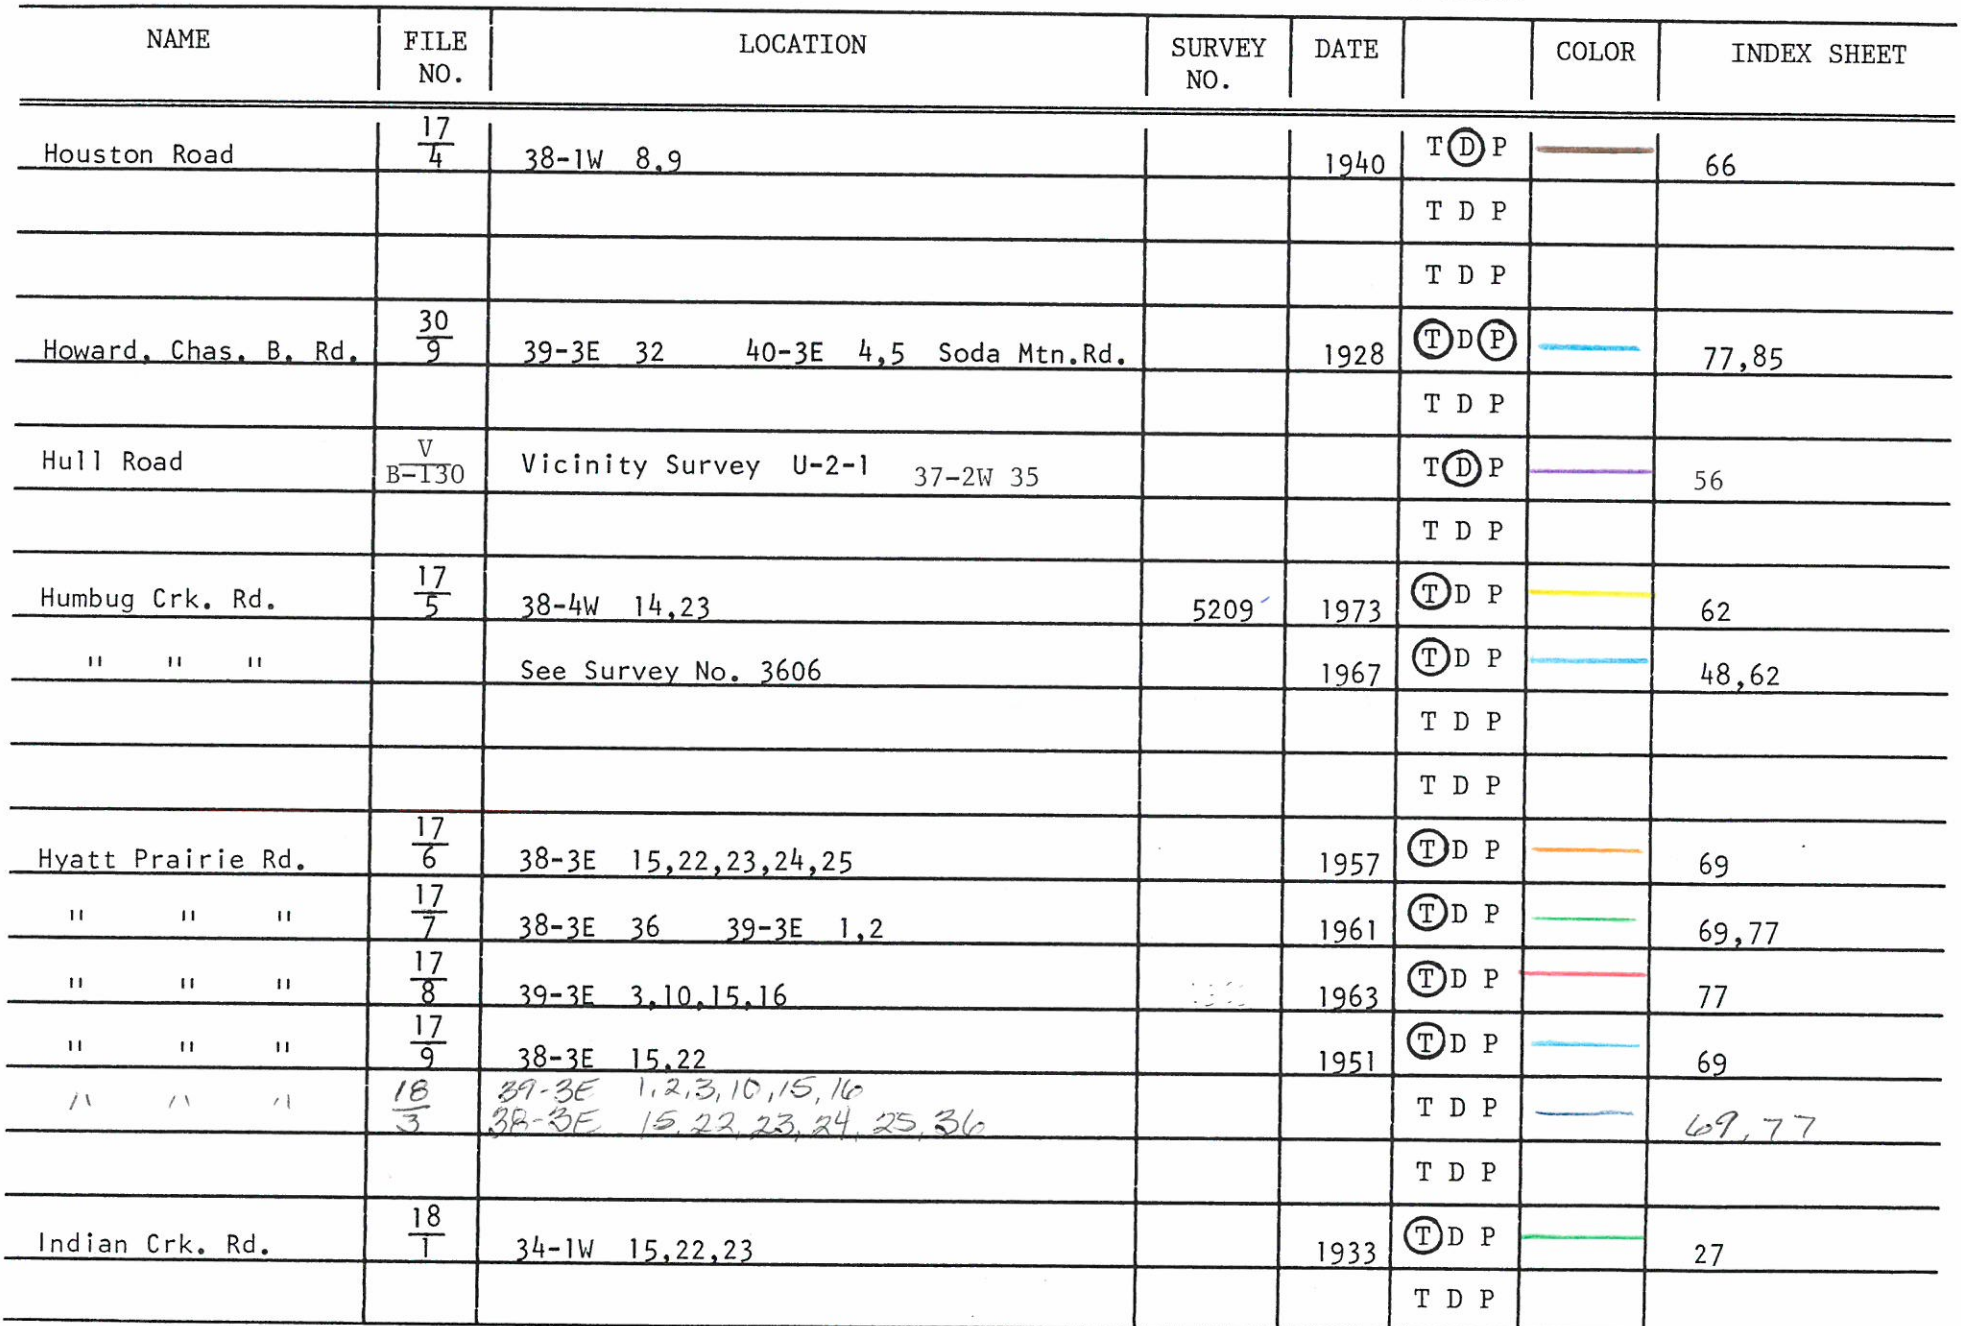 NAME FILE NO. LOCATION SURVEY NO. DATE COLOR INDEX SHEET
Houston Road 17/4 38-1W 8,9 1940 T D P 66
T D P
T D P
Howard, Chas. B. Rd. 30/9 39-3E 32 40-3E 4,5 Soda Mtn.Rd. 1928 T D P 77,85
T D P
Hull Road V/B-130 Vicinity Survey U-2-1 37-2W 35 T D P 56
T D P
Humbug Crk. Rd. 17/5 38-4W 14,23 5209 1973 T D P 62
" " " See Survey No. 3606 1967 T D P 48,62
T D P
T D P
Hyatt Prairie Rd. 17/6 38-3E 15,22,23,24,25 1957 T D P 69
" " " 17/7 38-3E 36 39-3E 1,2 1961 T D P 69,77
" " " 17/8 39-3E 3,10,15,16 1963 T D P 77
" " " 17/9 38-3E 15,22 1951 T D P 69
" " " 18/3 39-3E 1,2,3,10,15,16
38-3E 15,22,23,24,25,36 T D P 69,77
T D P
Indian Crk. Rd. 18/1 34-1W 15,22,23 1933 T D P 27
T D P